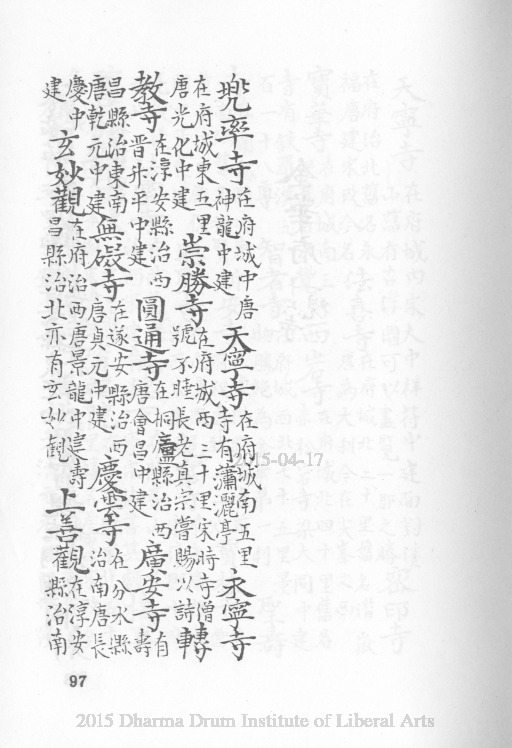 兜率寺在府城中唐神龍中建天寧寺在府城南五里寺有瀟灑亭永寧寺
在府城東五里唐光化中建崇勝寺在府城西三十里宋時寺僧號不睡長老真宗嘗賜以詩轉
教寺在淳安縣治西晋升平中建圓通寺在桐廬縣治西唐會昌中建廣安寺有壽
昌縣治東南唐乾元中建無礙寺在遂安縣治西唐貞元中建慶雲寺在分水縣治南唐長
慶中建玄妙觀在府治西唐景龍中建壽昌縣治北亦有玄妙觀上善觀在淳安縣治南
97
15-04-17
2015 Dharma Drum Institute of Liberal Arts